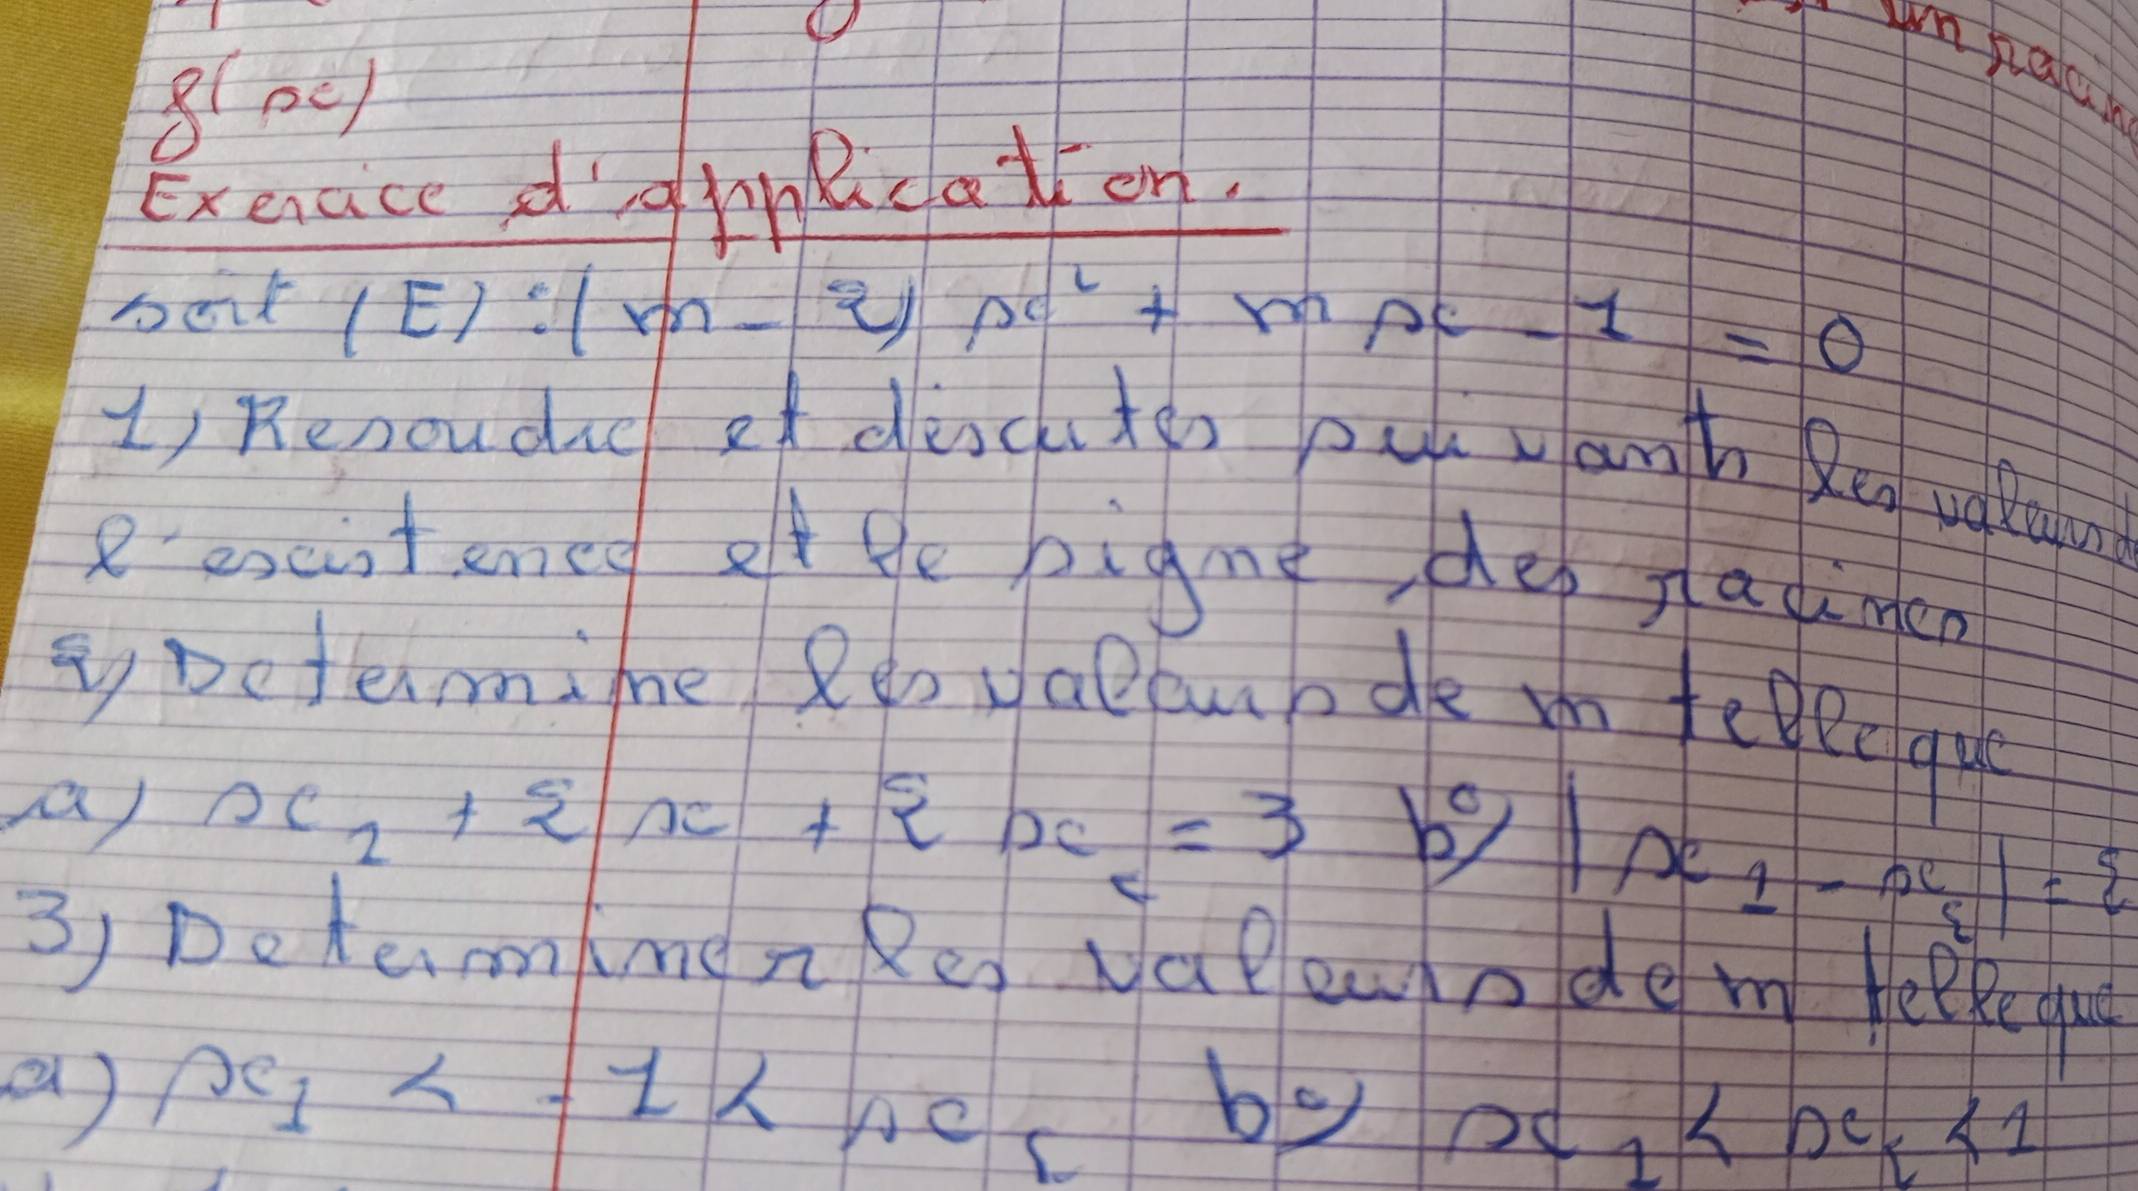 un racine
g(x)
Exercice d'application.
soit (E) : (m - 2) x² + m x - 1 = 0
1) Resoudre et discutes suivants les valeurs de
l'existence et le signe des racines
2) Determine les valeurs de m telle que
a) x₁ + 2 x + 2 x₂ = 3 b) |x₁ - x₂| = 2
3) Determiner les valeurs de m telle que
a) x₁ < -1 < x₂ b) x₁ < x₂ < 1